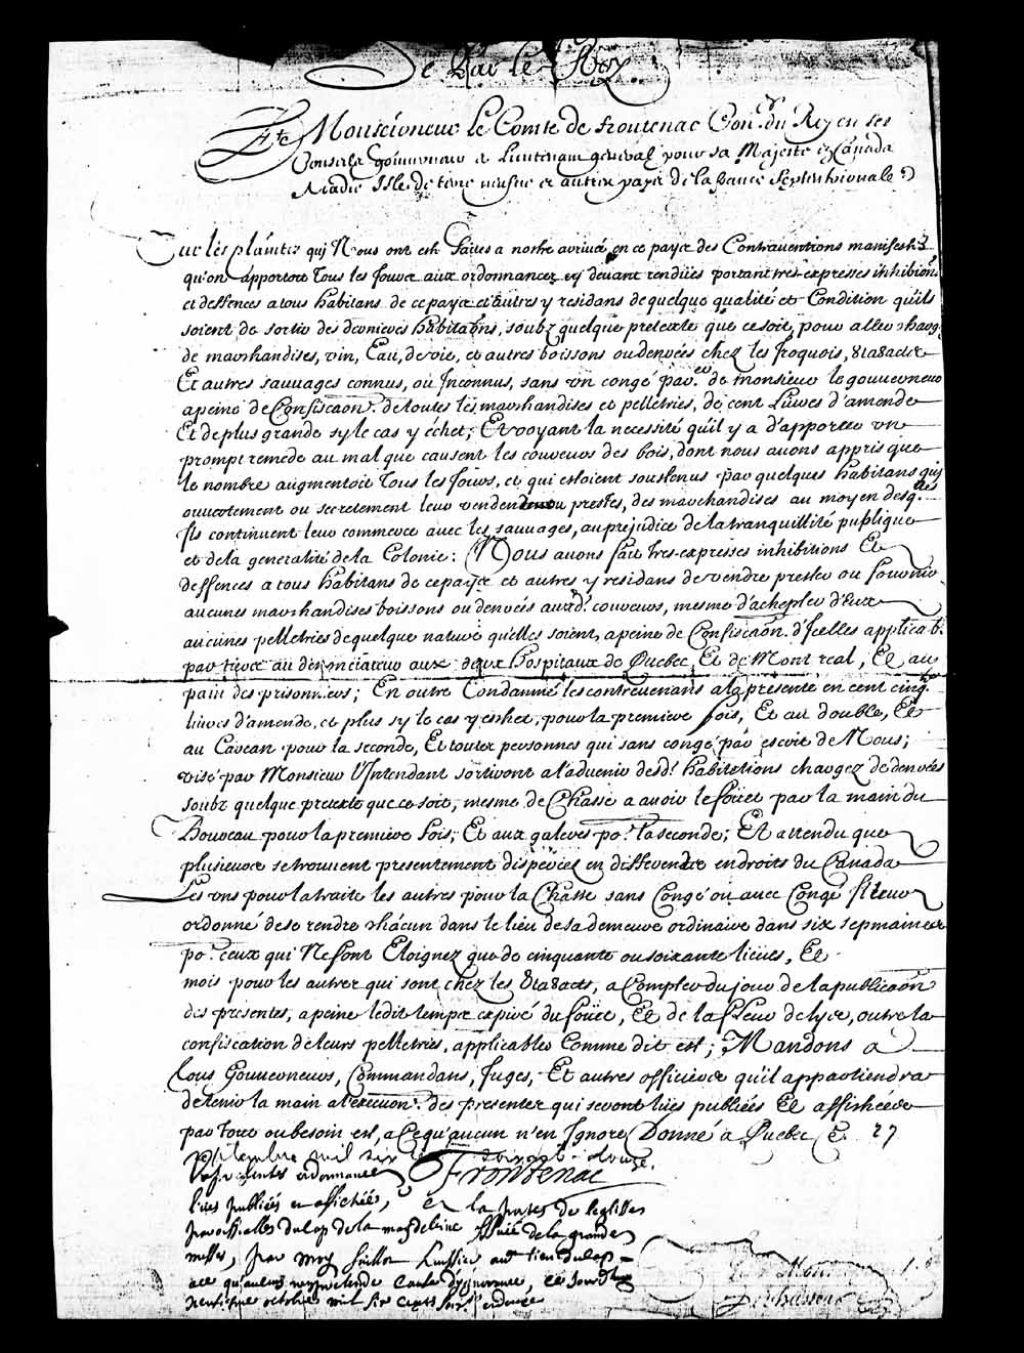 De Par le Roy
Monseigneur Le Comte de frontenac Con.er du Roy en ses
Conseils gouverneur et Lieutenant general pour sa Majesté en Canada
Acadie Isle de terre neufve et autres pays de la france Septentrionale
Sur les plaintes quj Nous ont esté faites a nostre arrivée en ce pays des Contraventions manifestes
qu'on apportoit Tous les Jours aux ordonnances cy devant rendües portant tres expresses inhibitions
et deffences a tous habitans de ce pays et autres y residans de quelque qualité et Condition qu'ils
soient de sortir des dernieres habitaons, soubz quelque pretexte que ce soit, pour aller charg.
de marchandises, vin, Eau, de vie, et autres boissons ou denrées chez les Iroquois, 8ta8acts
Et autres sauvages connus, ou Inconnus, sans un congé par er. de monsieur le gouverneur
a peine de Confiscaon. de toutes les marchandises et pelletries, de cent Liures d'amende
Et de plus grande sy le cas y échet; Et voyant la necessité qu'il y a d'apporter un
prompt remede au mal que causent les coureurs des bois, dont nous auons appris que
le nombre augmentoit Tous les Jours, et qui estoient soustenus par quelques habitans quj
ouuertement ou secretement leur vendent ou prestes, des marchandises au moyen desq.lles
Ils continuent leur commerce avec les sauuages, au prejudice de la tranquillité publique
et de la generalité de la Colonie: Nous auons fait tres-expresses inhibitions Et
deffences a tous habitans de ce pays et autres y residans de vendre prester ou fournir
aucunes marchandises boissons ou denrées aux d. coureurs, mesme d'achepter d'Eux
aucunes pelletries de quelque nature qu'elles soient, a peine de Confiscaon. d'Icelles applicab.
par tiers au denonciateur aux deux hospitaux de Quebec, Et de Mont real, Et au
pain des prisonniers; En outre Condamné les contreuenans a la presente en cent cinq.
liures d'amende, et plus sy le cas y eschet, pour la premiere fois, Et au double, Et
au Carcan pour la seconde, Et toutes personnes qui sans congé par escrit de Nous;
visé par Monsieur l'Intendant sortiront a l'aduenir desd. habitations chargez de denrées
soubz quelque pretexte que ce soit, mesme de Chasse a auoir le foüet par la main du
Boureau pour la premiere fois, Et aux galeres po. la seconde; Et attendu que
plusieurs se trouuent presentement dispercés en differends endroits du Canada
Les uns pour la traite les autres pour la Chasse sans Congé ou auec Congé Il leur
ordonné de se rendre chacun dans le lieu de sa demeure ordinaire dans six sepmaines
po. ceux qui Ne sont Eloignez que de cinquante ou soixante lieües, Et
mois pour les autres qui sont chez les 8ta8acts, a Compter du jour de la publicaon
des presentes, a peine ledit temps expiré du foüet, Et de la fleur de lys, outre la
confiscation de leurs pelletries, applicables Comme dit est; Mandons a
Tous Gouverneurs, Commandans, Juges, Et autres officiers qu'il appartiendra
de tenir la main a l'execuon. des presentes qui seront lües publiées Et affichées
par Tout ou besoin est, a Ce qu'aucun n'en Ignore Donné a Quebec Ce 27
septembre mil six soixante douze.
Frontenac
presentes ordonnances
lües publiées et affichées, a la porte de leglise
parroissialles du cap de la magdelaine Issüe de la grande
messe, par moy huissier au dit lieu du cap
ace qu'aucun nen pretende Cause dignorance, ce Jourdhuy
neufieme octobre mil six cents soix.